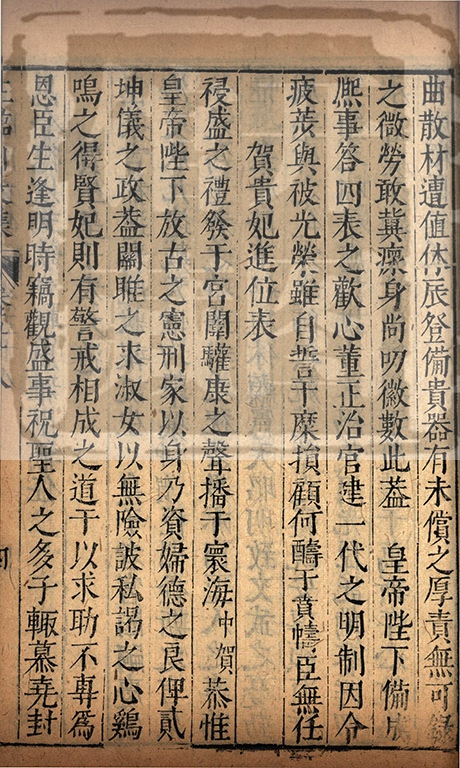 曲散材遭值休辰登備貴器有未償之厚責無可錄
之微勞敢冀瘝身尚叨徽數此葢　皇帝陛下備成
熈事答四表之歡心董正治官建一代之明制因令
疲苶與被光榮雖自誓于糜捐顧何醻于賁幬臣無任
賀貴妃進位表
祲盛之禮發于宮闈驩康之聲播于寰海中賀恭惟
皇帝陛下放古之憲刑家以身乃資婦德之良俾貳
坤儀之政葢關雎之求淑女以無險詖私謁之心鷄
鳴之得賢妃則有警戒相成之道于以求助不專爲
恩臣生逢明時竊觀盛事祝聖人之多子輒慕堯封